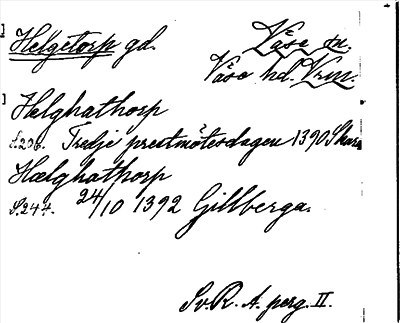 ] Helgetorp gd. Väse sn.
Väse hd. Vrm.
] Helghathorp
S.206. Tredje prestmötesdagen 1390 Skara
Hælghathorp
S.244. 24/10 1392 Gillberga.
Sv.R. A. perg. II.